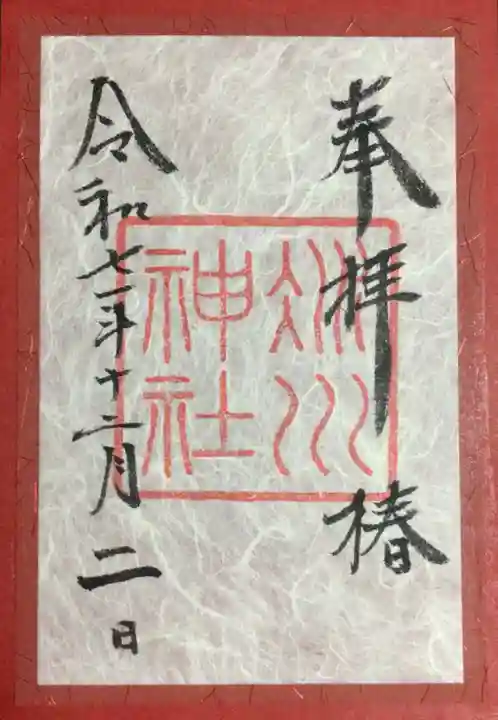 奉拝 椿
冰川
神社
令和七年十二月二日